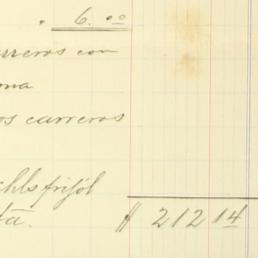 " 6.00
carreros con
ona
os carreros
chls frijol
ta. $ 212 14